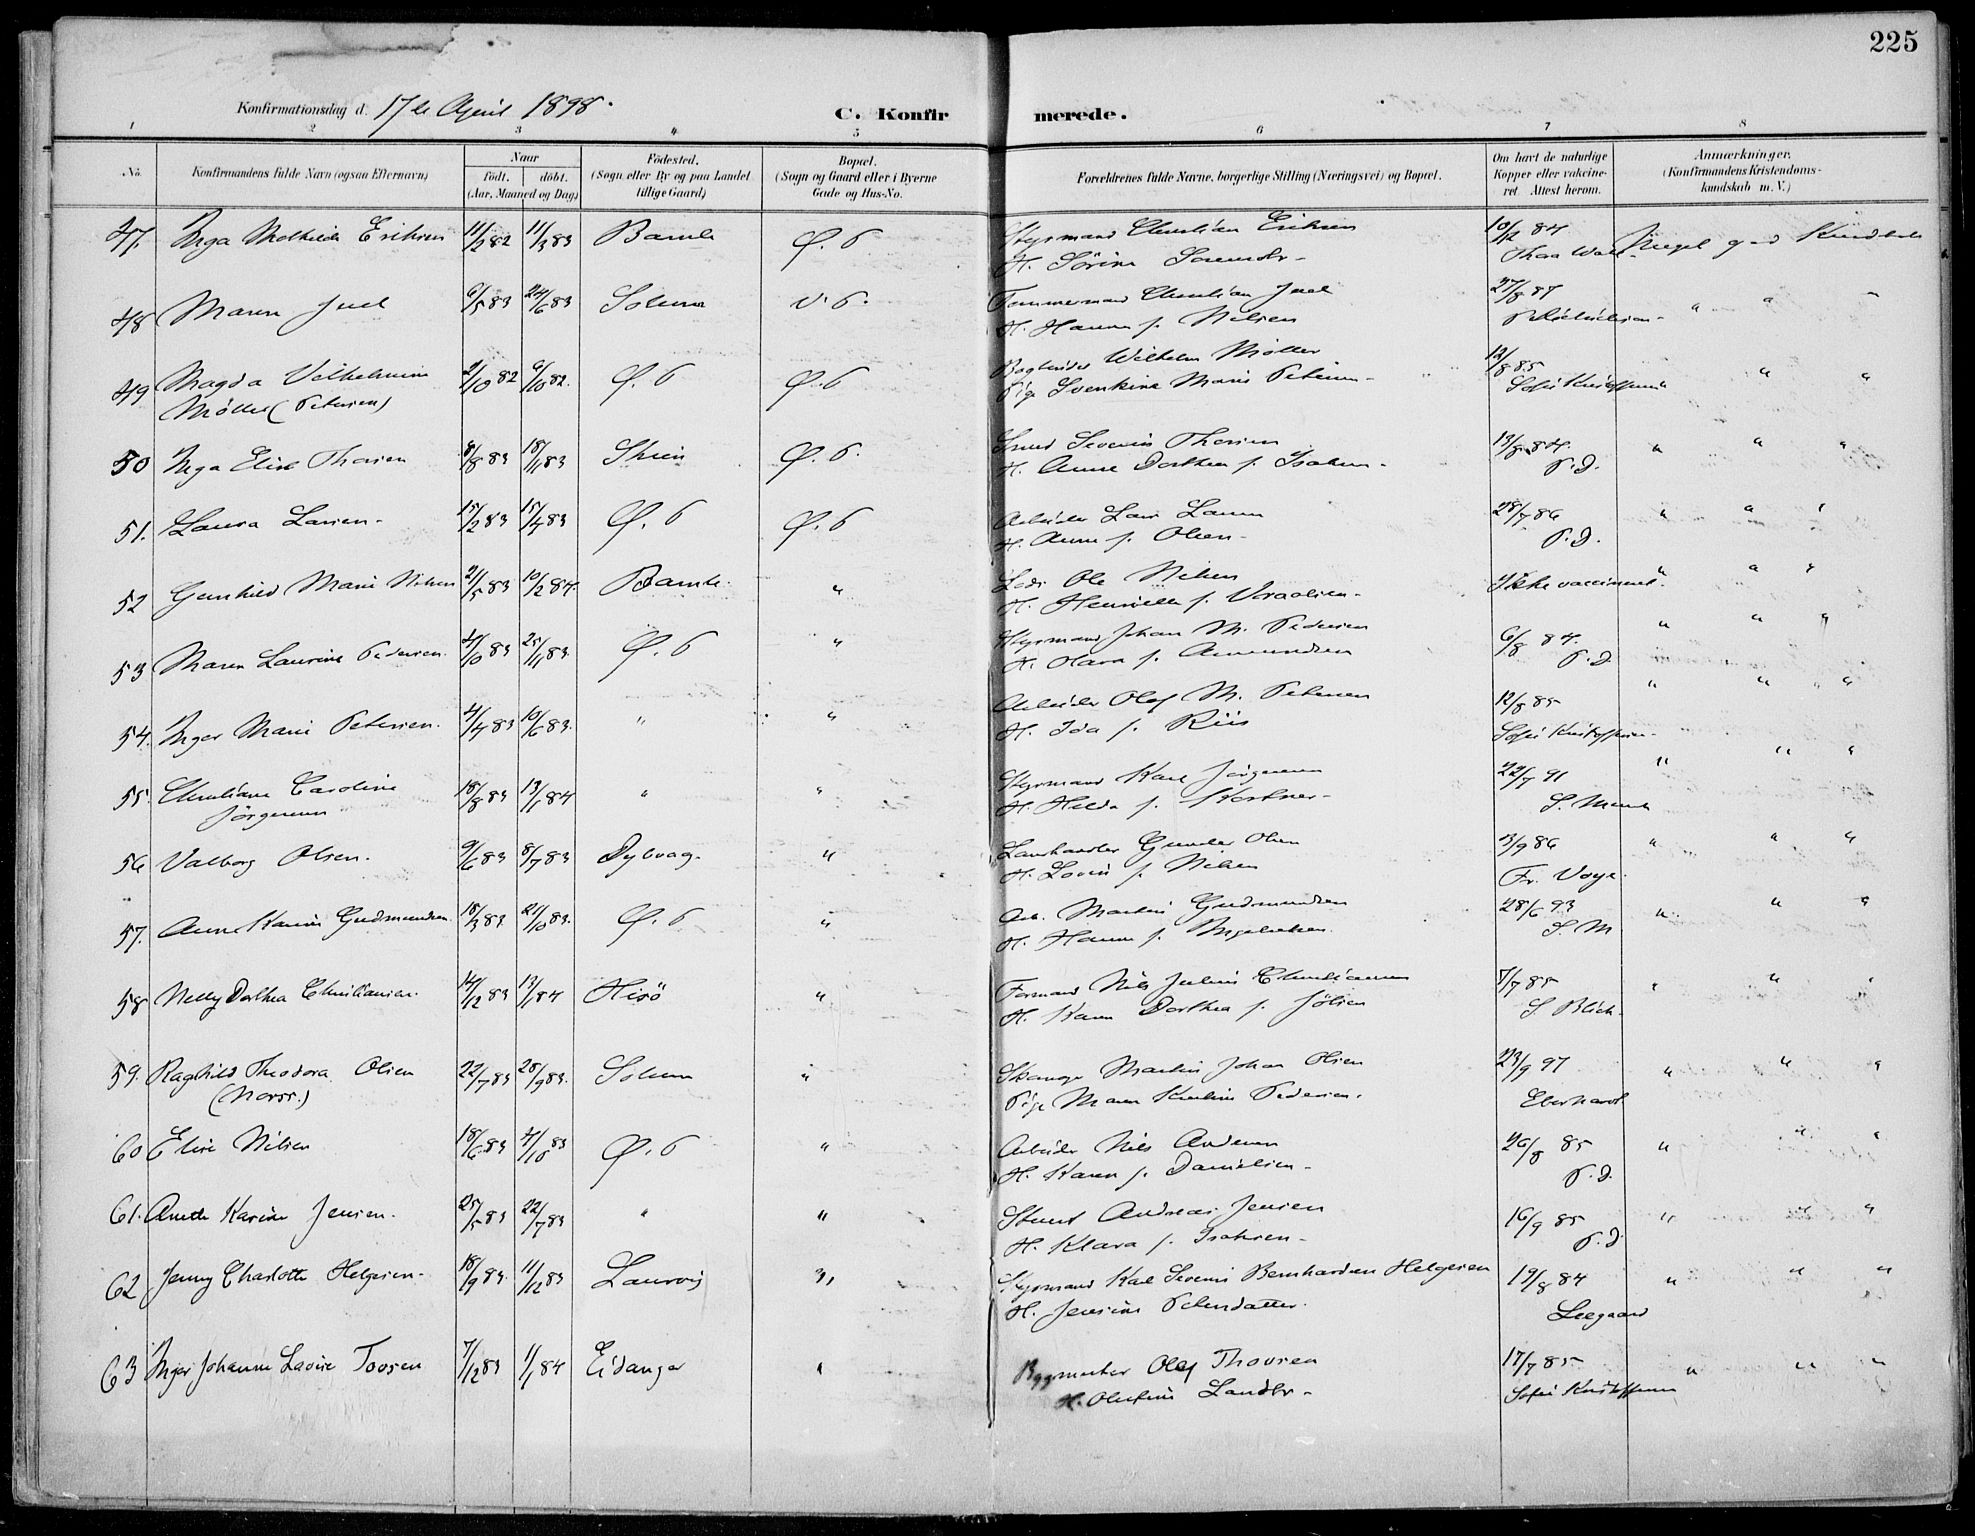 225
Konfirmationsdag d. 17de April 1898.
C. Konfirmerede.
1 2 3 4 5 6 7 8
No.
Konfirmandens fulde Navn (ogsaa Efternavn)
Naar
födt. döbt.
(Aar, Maaned og Dag)
Födested.
(Sogn eller By og paa Landet
tillige Gaard)
Bopæl.
(Sogn og Gaard eller i Byerne
Gade og Hus-No.
Forældrenes fulde Navne, borgerlige Stilling (Næringsvei) og Bopæl.
Om havt de naturlige
Kopper eller vakcine-
ret. Attest herom.
Anmærkninger.
(Konfirmandens Kristendoms-
kundskab m. V.)
47. Inga Mathilde Eriksen 11/2 82 11/3 83 Bamle Ø. 6 Styrmand Christian Eriksen 10/12 84 Meget god Kundskab
H. Sörine Sörensdr. Thea Wall
48 Maren Juel 6/5 83 24/6 83 Solum V. 6. Tømmermand Christian Juel 27/8 87 " " "
H. Hanna f. Nielsen
49 Magda Vilhelmine 2/10 82 6/10 82. Ø. 6 Ø. 6 Wilhelm Möller 12/8 85 " " "
Möller (Petersen) Pige Svenkine Marie Petersen Sofie Kristoffersen
50 Inga Elise Thorsen 8/8 83 18/11 83 Skien Ø. 6. Smed Severin Thorsen 13/8 84. " " "
H. Anne Dorthea f. Isaksen P.D.
51. Laura Larsen 15/2 83 15/4 83 Ø. 6 Ø. 6 Arbeider Lars Larsen 28/7 86 " " "
H. Anne f. Olsen P.D.
52 Gunhild Marie Nilsen 21/5 83 10/2 84. Bamle. " Lods Ole Nilsen Ikke vaccineret. " " "
H.
53 Maren Laurine Pedersen. 4/10 83 25/11 83. Ø. 6 " Styrmand Johan M. Pedersen 6/8 84. " " "
H. Olava f. Amundsen P.D.
54. Inger Marie Petersen. 4/4 83 10/6 83. " " Arbeider Olaf M. Petersen 12/8 85 " " "
H. Ida f. Riis Sofie Kristoffersen
55. Christiane Caroline 18/8 83 13/1 84 " " Styrmand Karl Jörgensen 22/7 91 " " "
Jörgensen H. Hilda f. S. Munk
56 Valborg Olsen. 9/6 83 8/7 83 Dybvag. " Landhandler Gunder Olsen 3/9 86 " " "
H. Lovise f. Nilsen Fr. Voye.
57. Anne Karine Gudmundsen 18/3 83. 21/10 83. Ø. 6 " Arb. Martin Gudmundsen 28/6 93 " " "
H. Hanna f. Ingebretsen. S. M
58 Nelly Dorthea Christiansen. 14/12 83 13/1 84 Hisö " Formand Nils Julius Christiansen 7/7 85 " " "
H. Karen Dorthea f. S. Blich
59. Ragnhild Theodora Olsen 22/7 83 28/9 83. Solum " Martin Johan Olsen 23/9 97 " " "
Pige Maren Pedersen. Eberhardt
60 Elise Nilsen 18/6 83 4/10 83 Ø. 6 " Arbeider Nils Andersen 26/8 85 " " "
H. Karen f. Danielsen P.D.
61. Anette Karine Jensen. 25/5 83 22/7 83 " " Andreas Jensen 16/9 85 " " "
H. Klara f. Isaksen P.D.
62 Jenny Charlotte Helgesen 18/9 83. 11/12 83 Laurvig " Styrmand Karl Severin Bernhardsen Helgesen 19/8 84 " " "
H. Jensine Petersdatter. Leegaard
63 Inger Johanne Lovise Tovsen 7/12 83 1/1 84 Eidanger " Byggmester Olaf Thovsen 17/7 85 " " "
H. Olefine Landbr. Sofie Kristoffersen